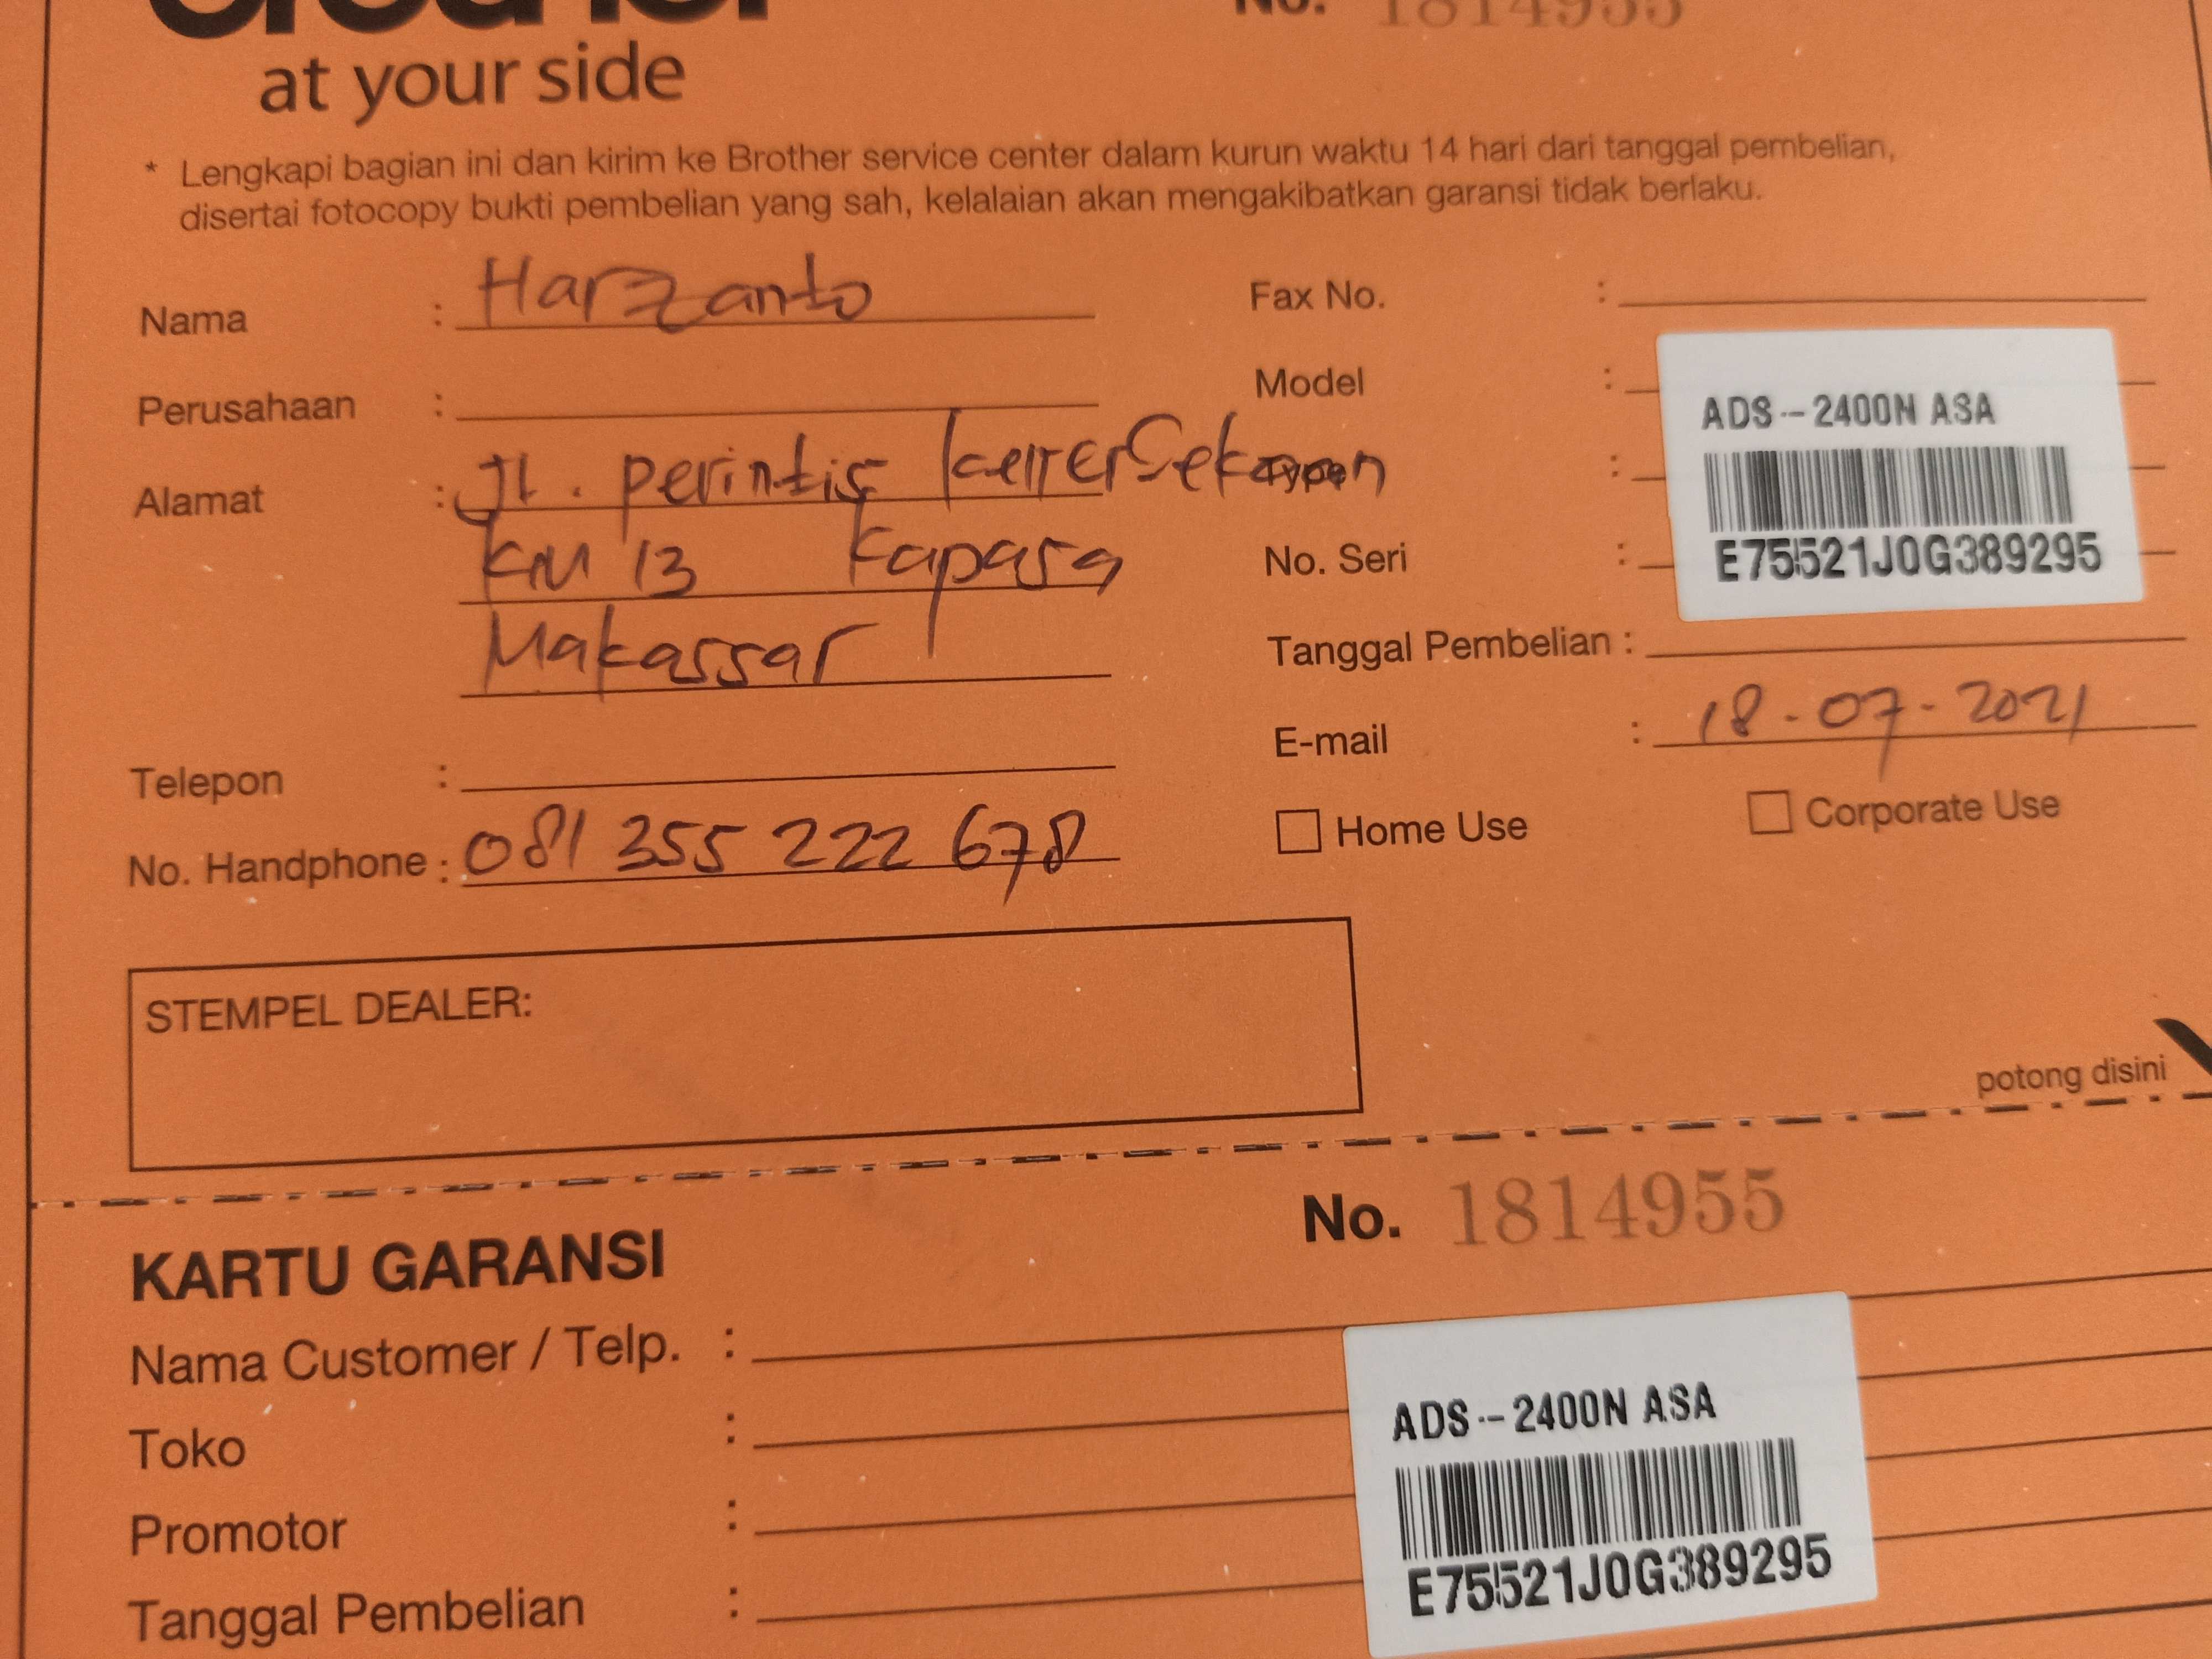 No. 1814955
at your side
* Lengkapi bagian ini dan kirim ke Brother service center dalam kurun waktu 14 hari dari tanggal pembelian,
disertai fotocopy bukti pembelian yang sah, kelalaian akan mengakibatkan garansi tidak berlaku.
Nama : Harzanto
Perusahaan :
Alamat : Jl. perintis
KM 13 Kapasa
Makassar
Telepon :
No. Handphone : 081 355 222 678
Fax No. :
Model :
Type :
No. Seri :
ADS--2400N ASA
E75521J0G389295
Tanggal Pembelian :
E-mail : 18-07-2021
Home Use
Corporate Use
STEMPEL DEALER:
potong disini
KARTU GARANSI
No. 1814955
Nama Customer / Telp. :
Toko :
Promotor :
Tanggal Pembelian :
ADS--2400N ASA
E75521J0G389295